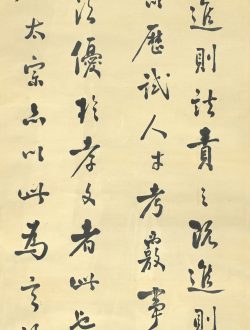 進則詰責之既進則
以歷試人才考覈事
優於孝文者此也
太宗亦以此為言